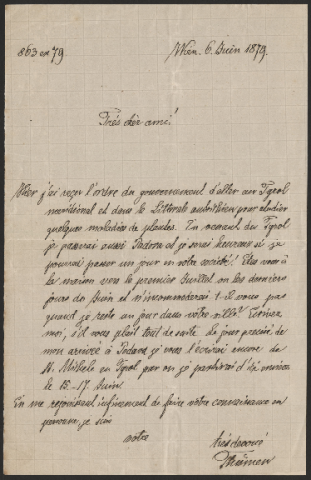 863 ex 79
Wien. 6. Juin 1879.
Très cher ami!
Hier j'ai reçu l'ordre du gouvernement d'aller au Tyrol
meridional et dans le Littorale autrichien pour etudier
quelques maladies de plantes. En venant du Tyrol
je passerai aussi Padova et je serais heureux si je
pourrai passer un jour en votre société! Etes vous à
la maison vers le premier Juillet ou les derniers
jours de Juin et n'incommoderai t-il vous pas
quand je reste un jour dans votre ville? Ecrivez
moi, s'il vous plait tout de suite. Le jour precisé de
mon arrivée à Padova je vous l'ecrirai encore de
St. Michele en Tyrol par où je partirai d'ici environ
le 15-17 Juin.
En me rejouissant infiniment de faire votre connaissance en
personne, je suis
votre
très devoué
Thümen